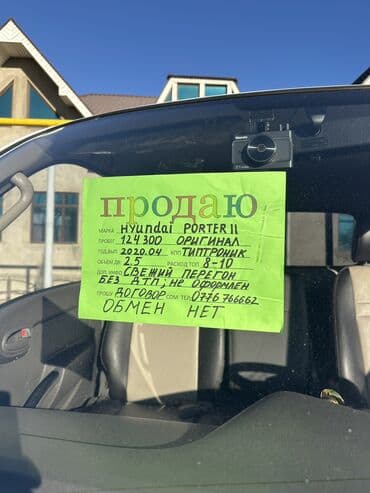 продаю
МАРКА HYUNDAI PORTER II
ПРОБЕГ 124300 ОРИГИНАЛ
ГОД ВЫП. 2020.04 КПП ТИПТРОНИК
ОБЪЕМ ДВ. 2.5 РАСХОД ТОП. 8-10
ДОП. ИНФО СВЕЖИЙ ПЕРЕГОН
БЕЗ ДТП, НЕ ОФОРМЛЕН
ПРОШУ ДОГОВОР СОМ ТЕЛ: 0776 766662
ОБМЕН НЕТ